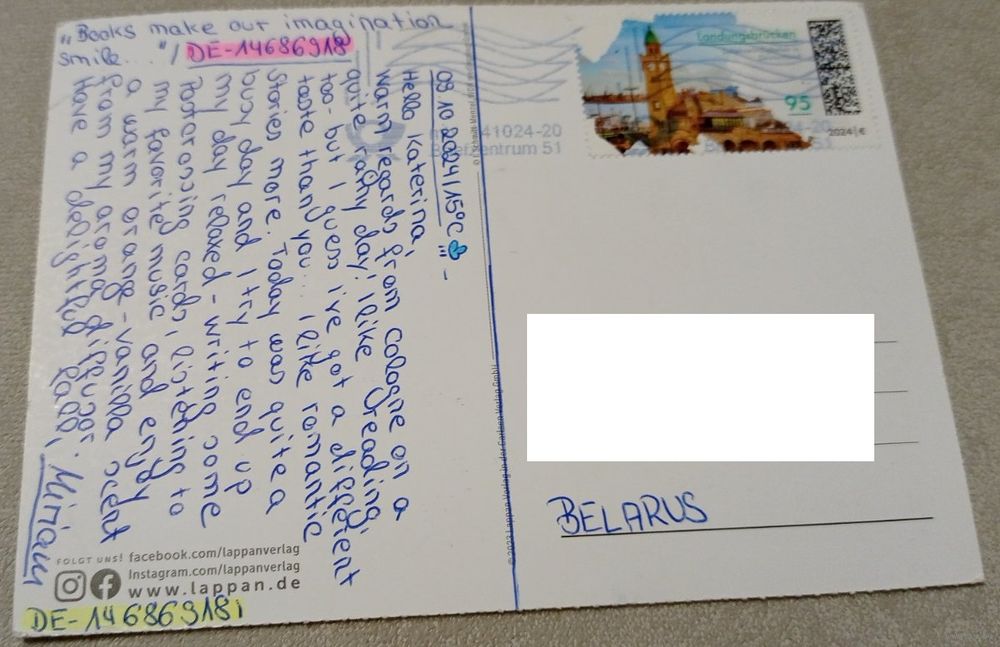 „Books make our imagination
smile..."/ DE-14686918
09.10.2024/15°C
Hello Katerina,
warm regards from Cologne on a
quite day! I like reading,
too - but I guess I've got a different
taste than you... I like romantic
stories more. Today was quite a
busy day and I try to end up
my day relaxed - writing some
Postcrossing cards, listening to
my favorite music and enjoy
a warm orange-vanilla scent
from my aroma diffusor.
Have a delightful fall!, Miriam
FOLGT UNS! facebook.com/lappanverlag
Instagram.com/lappanverlag
www.lappan.de
DE-14686918
© 2023 Lappan Verlag in der Carlsen Verlag GmbH
Landungsbrücken
95
2024 | €
41024-20
Briefzentrum 51
BELARUS